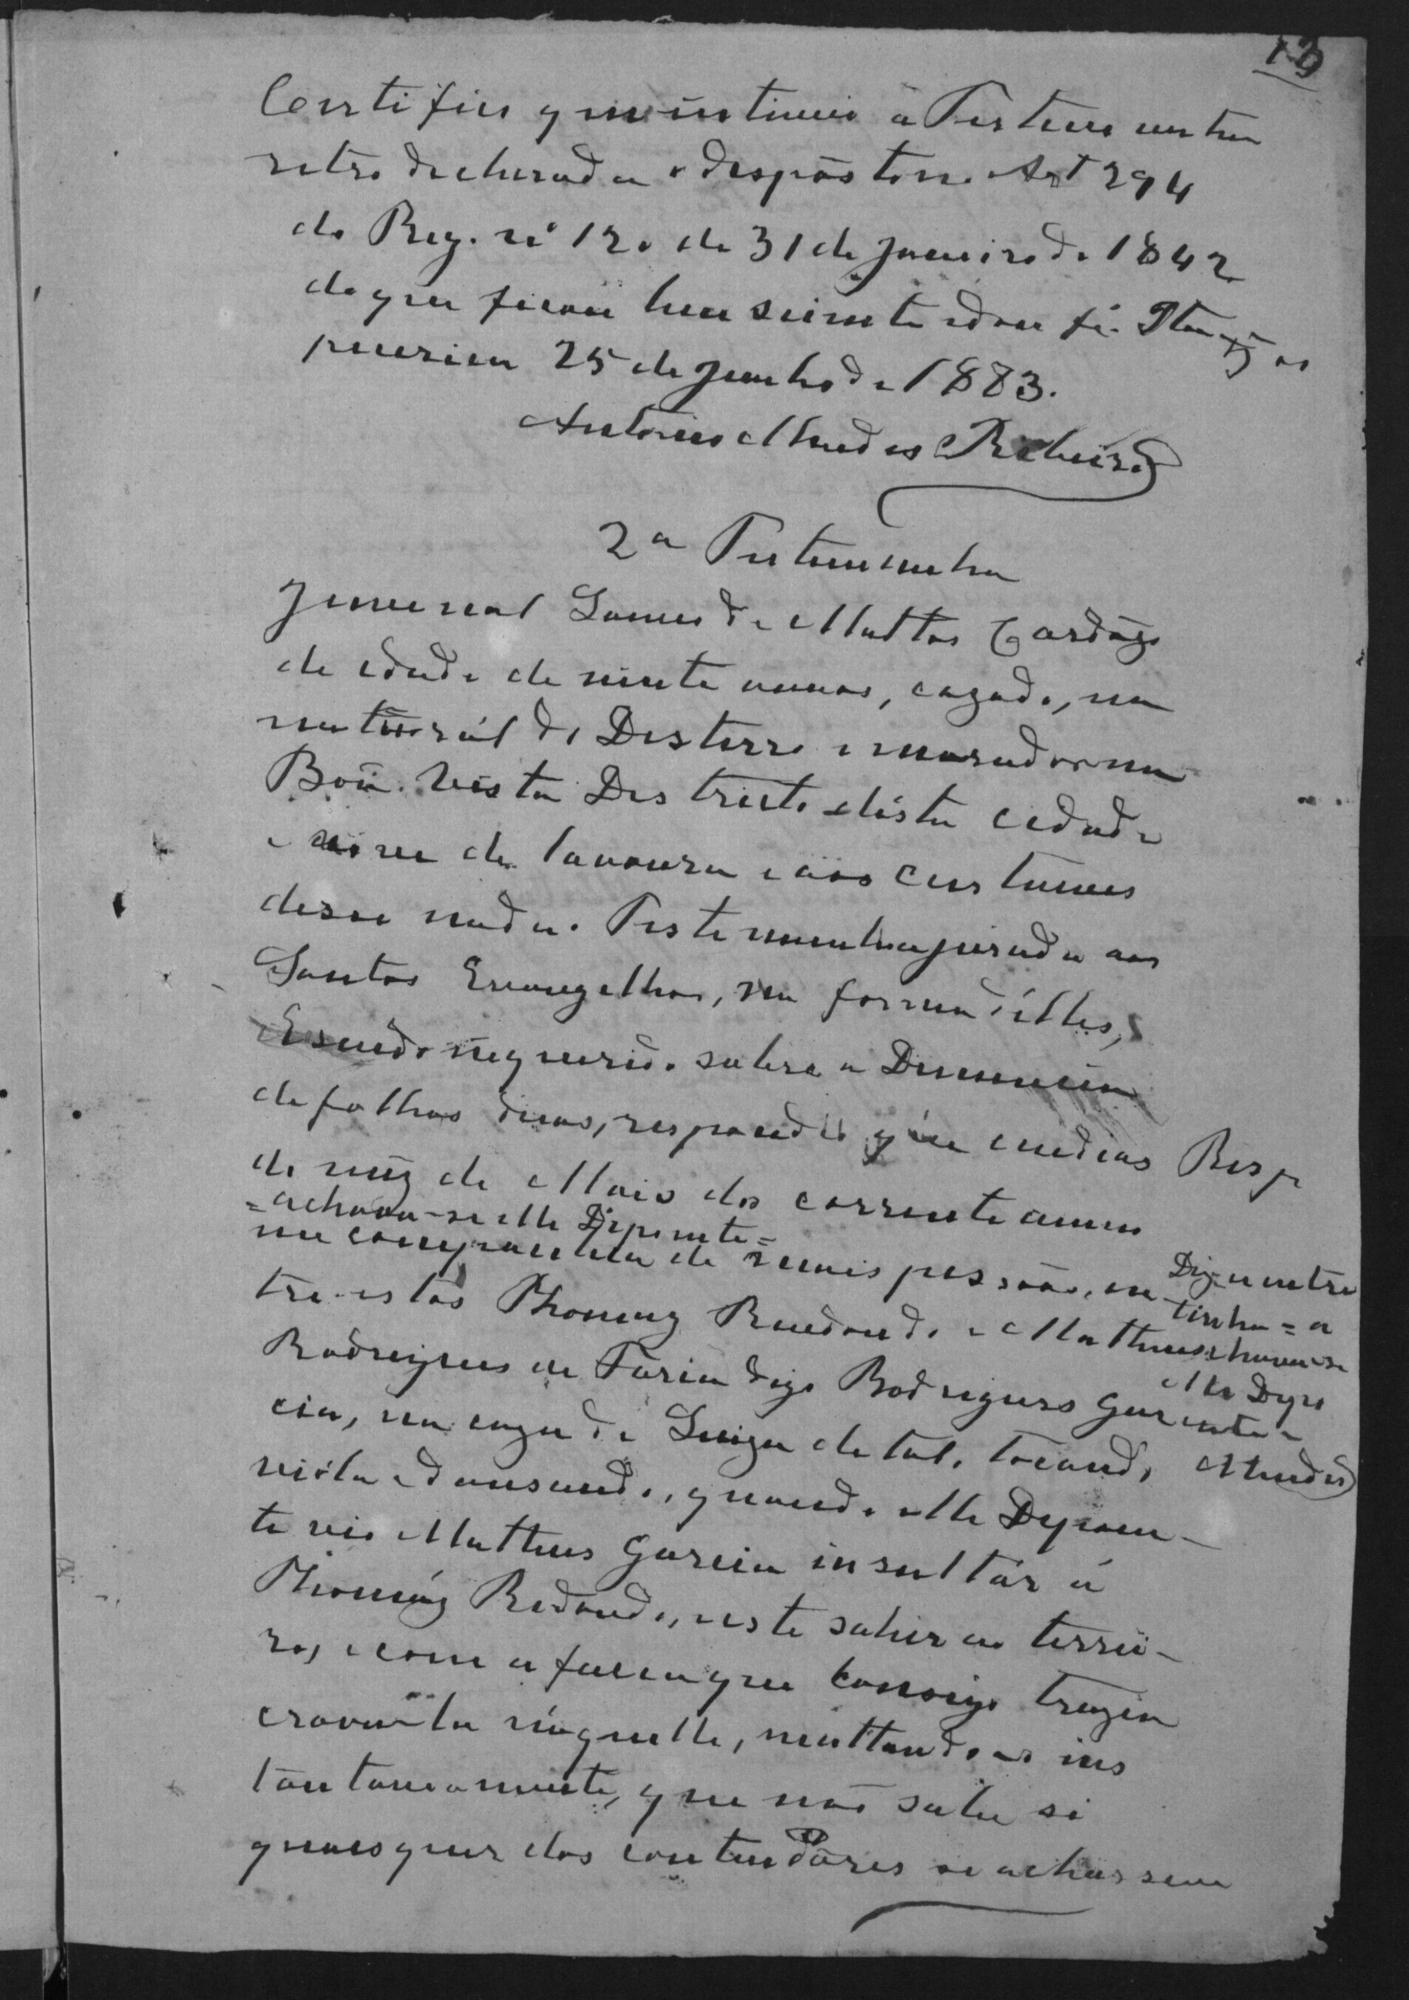 13
Certifico que intimei a Testemunha
retro declarada o disposto no Art 294
do Reg. nº 120 de 31 de Janeiro de 1842
do que ficou bem sciente e dou fé. Itaqua
25 de Junho de 1883.
Antonio Mendes Ribeiro
2ª Testemunha
Juvenal Gomes de Mattos Cardozo
de idade de vinte annos, cazado,
natural do Desterro e morador na
Bôa Vista Districto désta cidade
e vive de lavoura e aos custumes
disse nada. Testemunha jurada aos
Santos Evangelhos, na forma d'elles,
E sendo inquerido sobre a Denuncia
de folhas duas, respondeo que em dias Resp
do mez de Maio do corrente anno
=achava-se elle Depoente=
em companhia de mais pessôas, en
tre estas Thomaz Redondo e Matheus
Rodrigues de Faria digo Rodrigues Gar
cia, na caza de Luiza de tal, tocando
viola e dansando, quando elle Depoen-
te vio Matheus Garcia insultár á
Thomáz Redondo, e este sahir ao terrei-
ro, e com a faca que comsigo trazia
cravou-la n'aquelle, mattando-o ins
tantaneamente, que não sabe si
quaesquer dos contendôres se achassem
Digo entre
linha = a
chava-se
elle Depo
ente =
Mendes